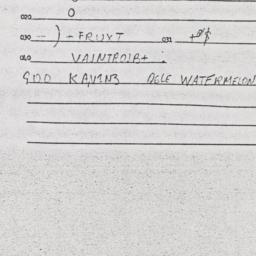 020 0
030 -) - FRUYT 031 +8$
040 VAINTROIB+ :
900 KAVINS DGLE WATERMELON